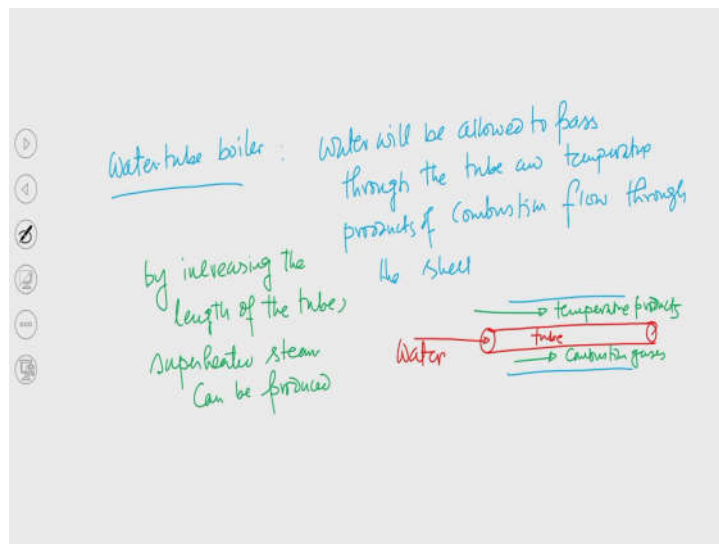 Water tube boiler : Water will be allowed to pass
through the tube and temperature
products of combustion flow through
the shell
by increasing the
length of the tubes,
superheated steam
Can be produced
temperature products
Water
tube
Combustion gases